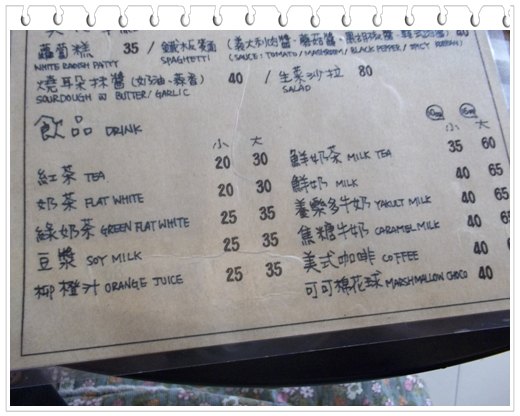 蘿蔔糕 35 / 鐵板麵 (義大利肉醬、蘑菇醬、黑胡椒醬、韓式肉醬)
WHITE RADISH PATTY SPAGHETTI (SAUCE: TOMATO / MASHROOM / BLACK PEPPER / SPICY KOREAN)
燒耳朵抹醬 (奶油、蒜香) 40 / 生菜沙拉 80
SOURDOUGH W BUTTER/ GARLIC SALAD
飲品 DRINK
小 大
紅茶 TEA 20 30
奶茶 FLAT WHITE 20 30
綠奶茶 GREEN FLAT WHITE 25 35
豆漿 SOY MILK 25 35
柳橙汁 ORANGE JUICE 25 35
小 大
鮮奶茶 MILK TEA 35 60
鮮奶 MILK 40 65
養樂多牛奶 YAKULT MILK 40 65
焦糖牛奶 CARAMEL MILK 40 65
美式咖啡 COFFEE 40
可可棉花球 MARSHMALLOW CHOCO 40